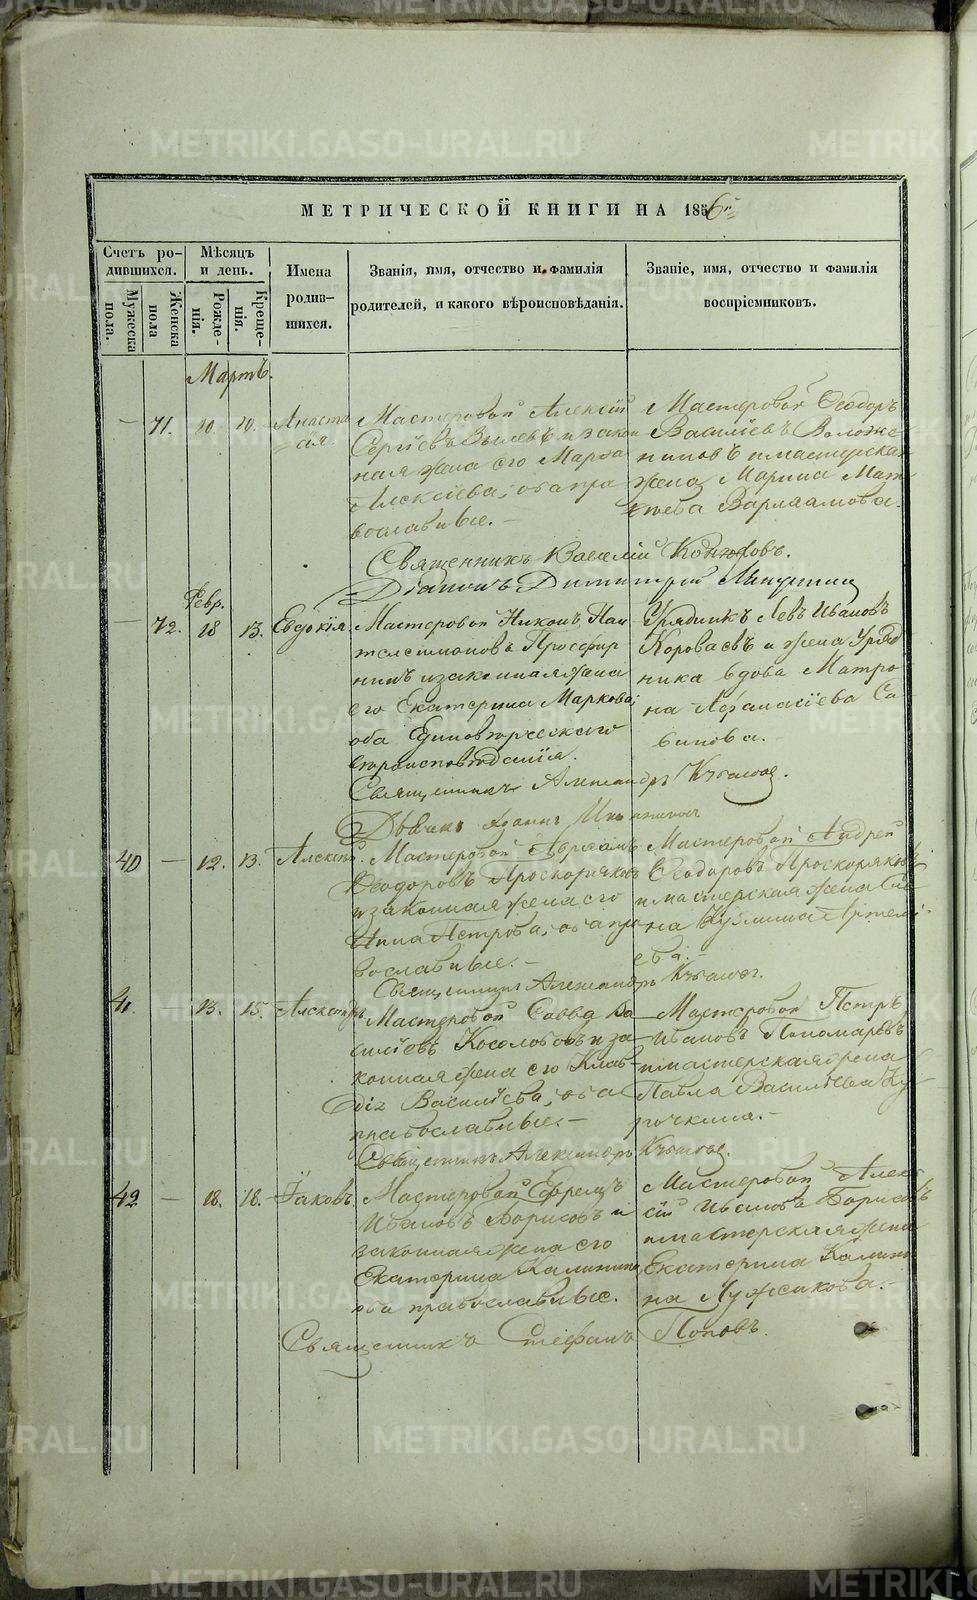 МЕТРИЧЕСКОЙ КНИГИ НА 1856й
Счетъ ро-
дившихся.
Мужеска
пола.
Женска
пола
Мѣсяцъ
и день.
Рожде-
нія.
Креще-
нія.
Имена
родив-
шихся.
Званія, имя, отчество и фамилія
родителей, и какого вѣроисповѣданія.
Званіе, имя, отчество и фамилія
воспріемниковъ.
Мартъ.
— 71. 10. 10. Анаста
сія.
Мастеровой Алексій
Сергіевъ Зылевъ и закон
ная жена его Марѳа
Алексіева, оба пра
вославные. —
Мастеровой Ѳеодоръ
Василіевъ Воложе
ниновъ и мастерская
жена Марина Мат
ѳіева Варлаамова.
Священникъ Василій
Діаконъ Димитрій
Февр.
— 72. 18 13. Евдокія.
Мастеровой Никонъ Пан
телеимоновъ Просвир
нинъ и законная жена
его Екатерина Маркова;
оба Единовѣрческаго
вѣроисповѣданія.
Урядникъ Левъ Ивановъ
Короваевъ и жена Уряд
ника вдова Матро
на Аѳанасіева Са
винова.
Священникъ Александръ
40 — 12. 13. Алексій.
Мастеровой Авраамъ
Ѳеодоровъ Проскоряковъ
и законная жена его
Анна Петрова, оба пра
вославные. —
Мастеровой Андрей
Ѳеодоровъ Проскоряковъ
и мастерская жена
на Кузмина Артемі-
ева. —
Священникъ Александръ
41. 13. 15. Александръ
Мастеровой Савва Ва
силіевъ Косолобовъ и за
конная жена его Клав-
діа Василіева, оба
православные. —
Мастеровой Петръ
Ивановъ Пономаревъ
и мастерская жена
Павла Василіева Ку
рочкина. —
Священникъ Александръ
42 — 18. 18. Іаковъ.
Мастеровой Ефремъ
Ивановъ Борисовъ и
законная жена его
Екатерина Калинина,
оба православные.
Мастеровой Алек
сій Ивановъ Борисовъ
и мастерская жена
Екатерина Калини
на Лужсикова.
Священникъ Стефанъ Поповъ.
METRIKI.GASO-URAL.RU